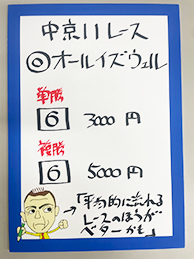 中京11レース
◎オールイズウェル
単勝
6 3000円
複勝
6 5000円
「平均的に流れる
レースのほうが
ベターかも」